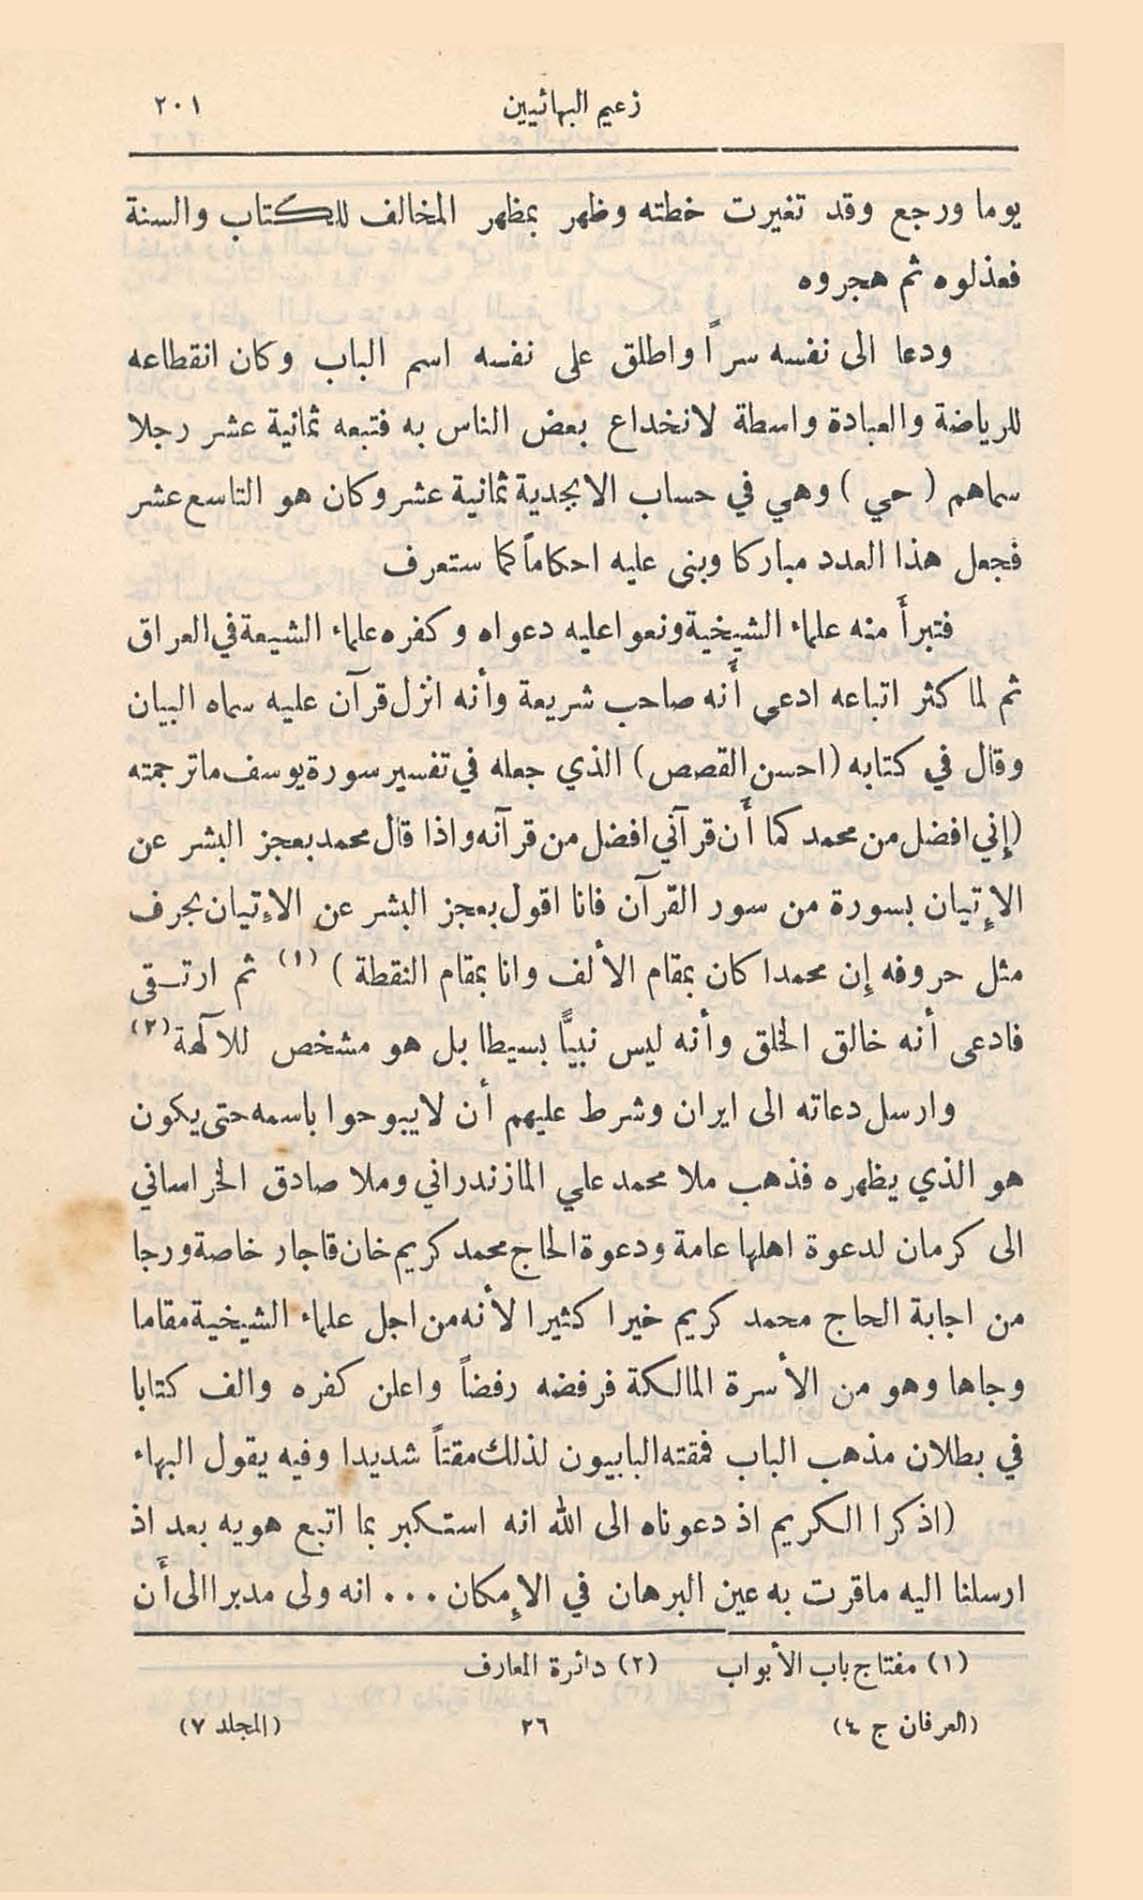 زعيم البهائيين ٢٠١
يوما ورجع وقد تغيرت خطته وظهر بمظهر المخالف للكتاب والسنة
فعذلوه ثم هجروه
ودعا الى نفسه سراً واطلق على نفسه اسم الباب وكان انقطاعه
للرياضة والعبادة واسطة لانخداع بعض الناس به فتبعه ثمانية عشر رجلا
سماهم ( حي ) وهي في حساب الابجدية ثمانية عشر وكان هو التاسع عشر
فجعل هذا العدد مباركا وبنى عليه احكاماً كما ستعرف
فتبرأ منه علماء الشيخية ونعوا عليه دعواه وكفره علماء الشيعة في العراق
ثم لما كثر اتباعه ادعى أنه صاحب شريعة وأنه انزل قرآن عليه سماه البيان
وقال في كتابه (احسن القصص) الذي جعله في تفسير سورة يوسف ماترجمته
(إني افضل من محمد كما أن قرآني افضل من قرآنه واذا قال محمد بعجز البشر عن
الإتيان بسورة من سور القرآن فانا اقول بعجز البشر عن الإتيان بحرف
مثل حروفه إن محمدا كان بمقام الألف وانا بمقام النقطة ) (١) ثم ارتقى
فادعى أنه خالق الخلق وأنه ليس نبيًّا بسيطا بل هو مشخص للآلهة (٢)
وارسل دعاته الى ايران وشرط عليهم أن لايبوحوا باسمه حتى يكون
هو الذي يظهره فذهب ملا محمد علي المازندراني وملا صادق الخراساني
الى كرمان لدعوة اهلها عامة ودعوة الحاج محمد كريم خان قاجار خاصة ورجا
من اجابة الحاج محمد كريم خيرا كثيرا لأنه من اجل علماء الشيخية مقاما
وجاها وهو من الأسرة المالكة فرفضه رفضاً واعلن كفره والف كتابا
في بطلان مذهب الباب فمقته البابيون لذلك مقتاً شديدا وفيه يقول البهاء
(اذكرا الكريم اذ دعوناه الى الله انه استكبر بما اتبع هويه بعد اذ
ارسلنا اليه ماقرت به عين البرهان في الإمكان ... انه ولى مدبرا الى أن
(١) مفتاح باب الأبواب (٢) دائرة المعارف
(العرفان ج ٤) ٢٦ (المجلد ٧)